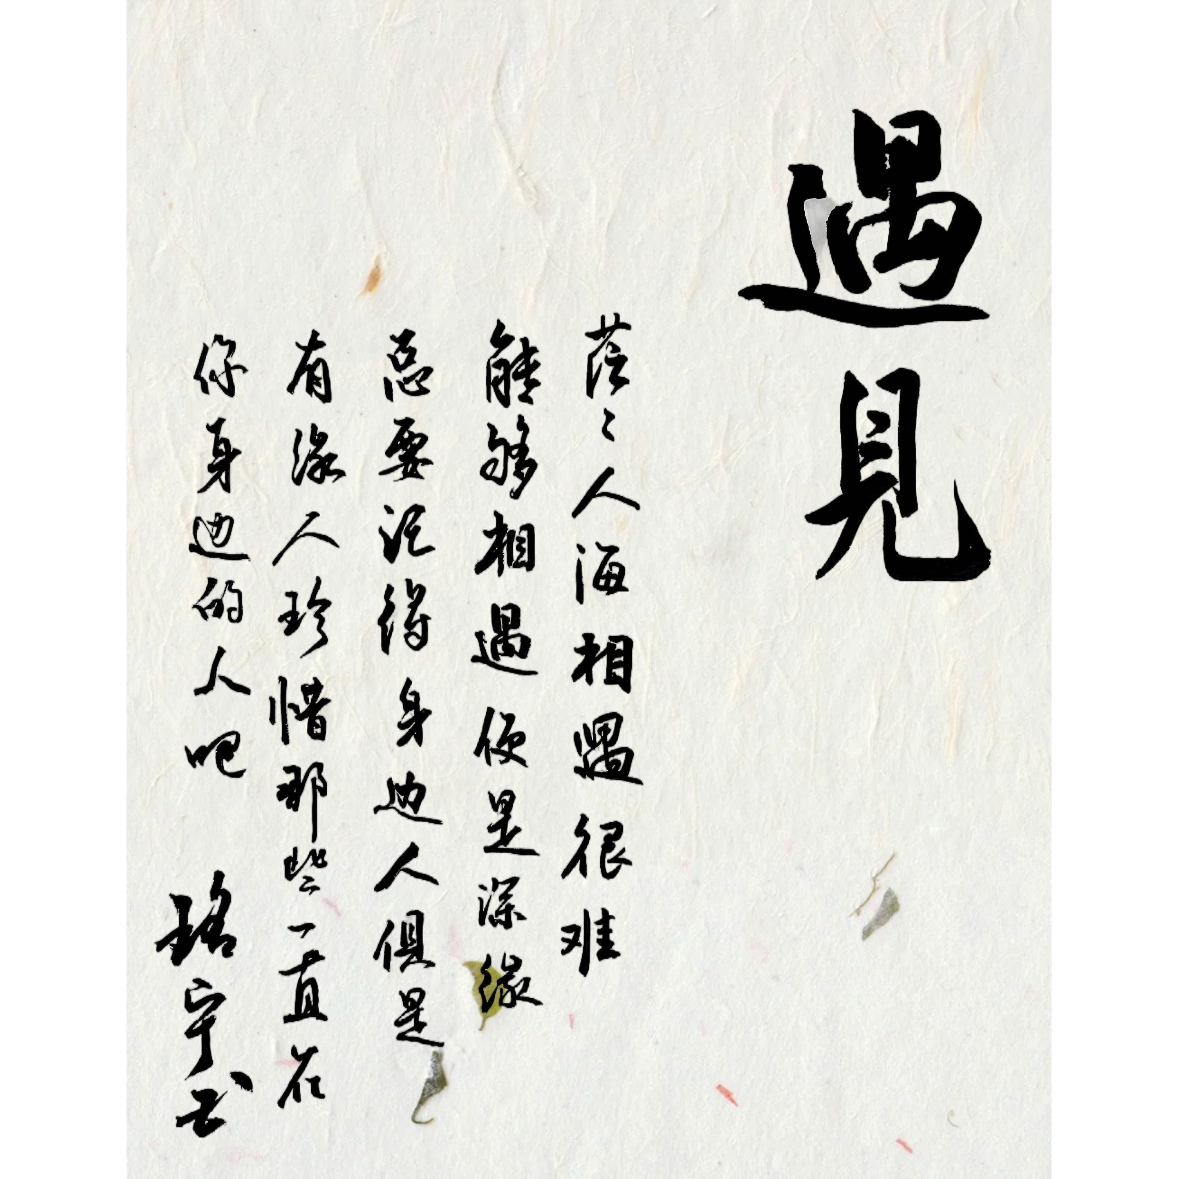 遇見
茫々人海相遇很难
能够相遇便是深缘
总要记得身边人俱是
有缘人珍惜那些一直在
你身边的人吧
珞宁书